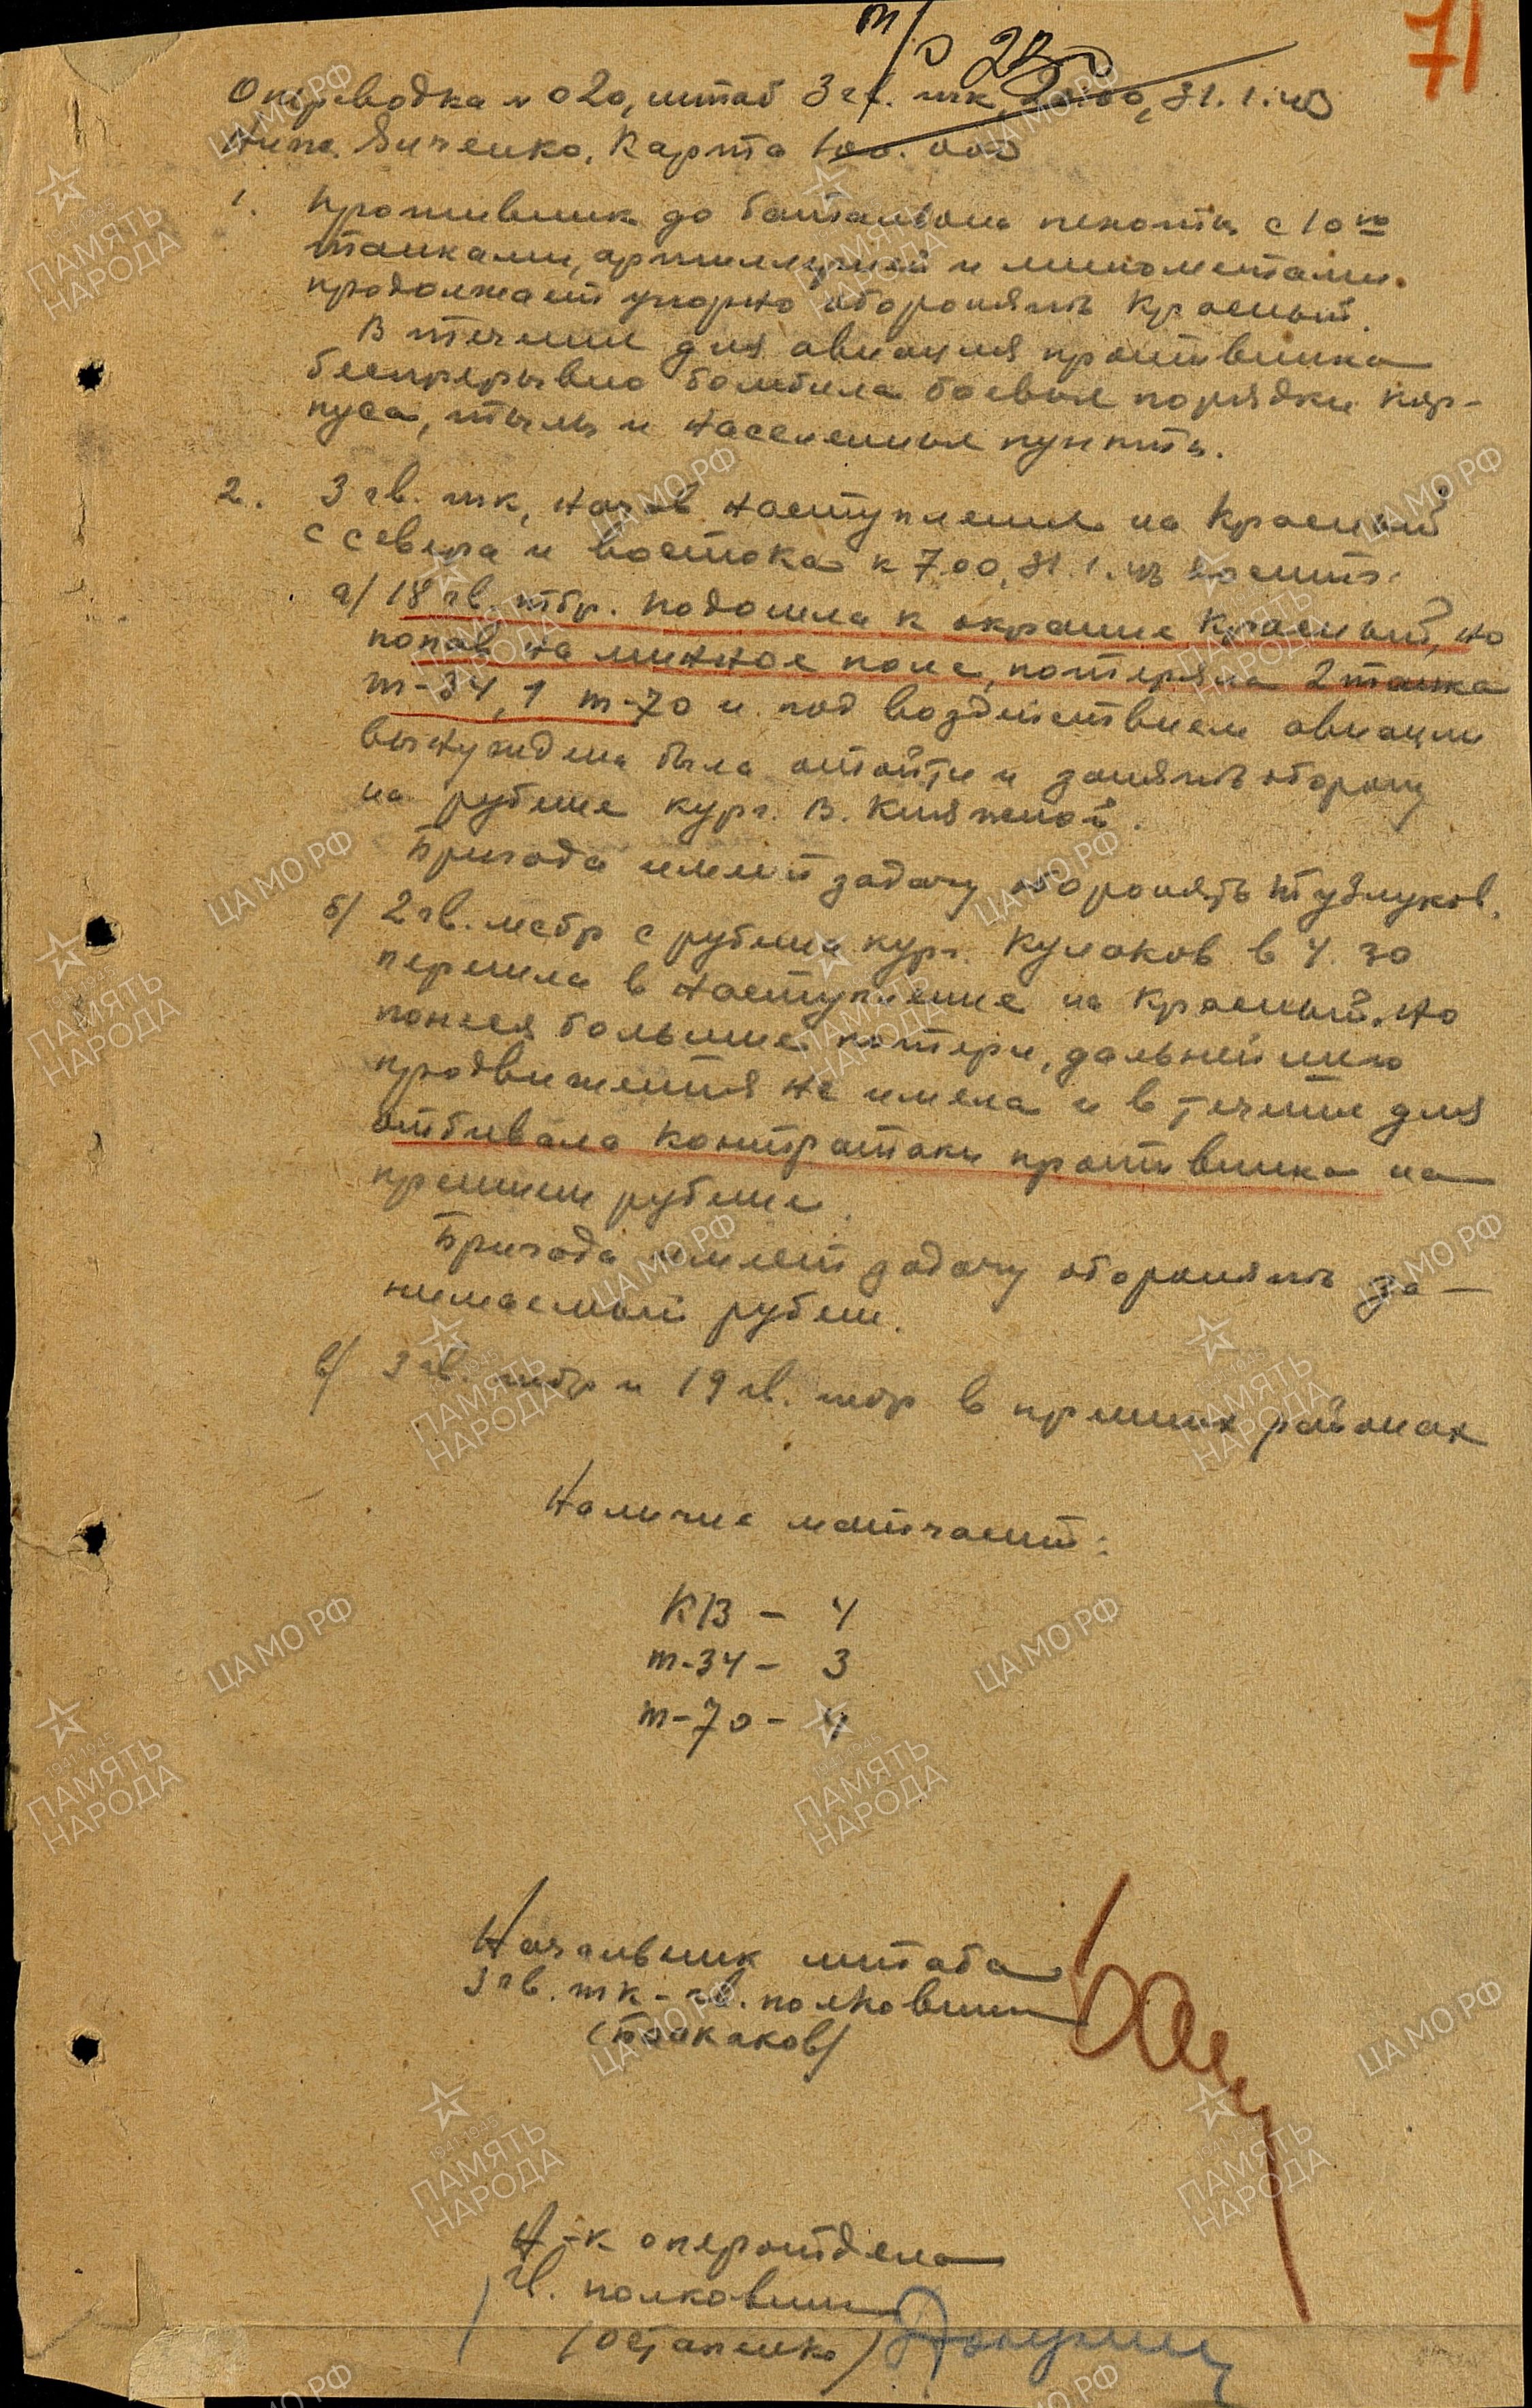 71
Оперсводка № 020, штаб 3 гв. тк, 20.00, 31.1.43
Карта 100.000
1. Противник до батальона пехоты с 10ю
танками, артиллерией и минометами
продолжает упорно оборонять Красный.
В течении дня авиация противника
беспрерывно бомбила боевые порядки кор-
пуса, тылы и населенные пункты.
2. 3 гв. тк, начав наступление на Красный
с севера и востока к 7.00, 31.1.43
а/ 18 гв. тбр. подошла к окраине Красный, но
попав на минное поле, потеряла 2 танка
т-34, 1 т-70 и под воздействием авиации
вынуждена была отойти и занять оборону
на рубеже кург. В. Княжной.
Бригада имеет задачу оборонять Тузлуков.
б/ 2 гв. мсбр с рубежа кург. Кулаков в 4.30
перешла в наступление на Красный, но
понеся большие потери, дальнейшего
продвижения не имела и в течение дня
отбивала контратаки противника на
прежнем рубеже.
Бригада имеет задачу оборонять за-
нимаемый рубеж.
в/ 3 гв. тбр и 19 гв. тбр в прежних районах
Наличие матчасти:
КВ - 4
т-34 - 3
т-70 - 4
Начальник штаба
3 гв. тк - гв. полковник
Н-к оперотдела
гв. полковник
(Остапенко)
ЦА МО РФ
1941-1945
ПАМЯТЬ
НАРОДА